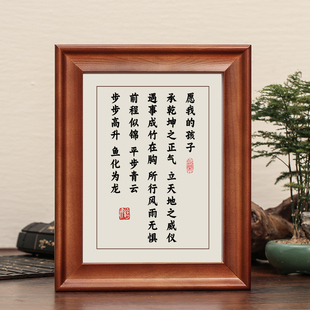 愿我的孩子
承乾坤之正气 立天地之威仪
遇事成竹在胸 所行风雨无惧
前程似锦 平步青云
步步高升 鱼化为龙